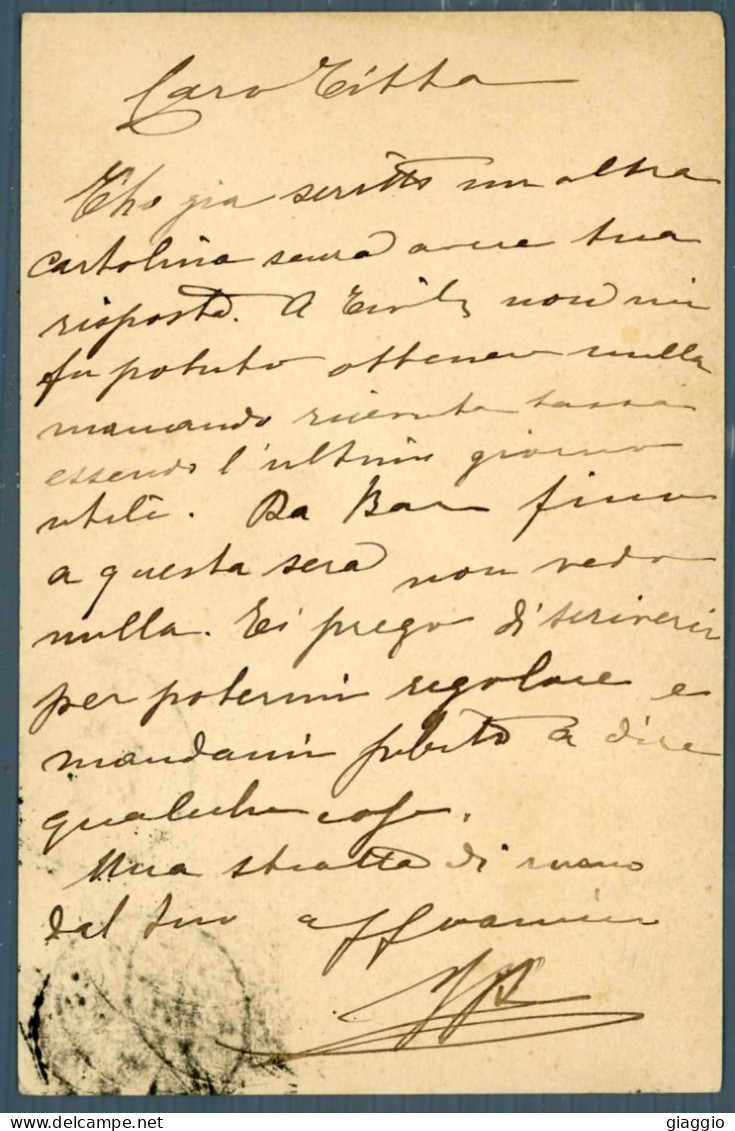 Caro Titta
T'ho già scritto un altra
cartolina senza avere tua
risposta. A non mi
fu potuto ottenere nulla
mancando ricevuta tassa
essendo l'ultimo giorno
utile. Da Bari fino
a questa sera non vedo
nulla. Ti prego di scrivermi
per potermi regolare e
mandami subito a dire
qualche cosa.
Una stretta di mano
dal tuo aff amico
giaggio